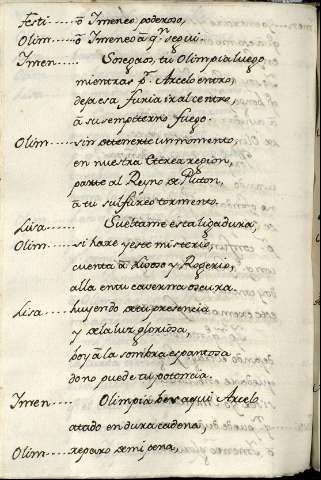 Festi..... ō Imeneo, poderoso,
Olim..... ō Imeneo ā qn segui.
Imen..... Sosegaos, tu Olimpia luego
mientras pr. Arcelo entro,
depresa furia ir al centro,
ā su sempiterno fuego.
Olim..... sin detenerte un momento,
en nuestra Eterea region,
parte al Reyno de Pluton,
ā tu sulfureo tormento.
Lisa..... Sueltame esta ligadura,
Olim..... si hare y este misterio,
cuenta ā Lidoso y Rogerio,
alla en tu caverna oscura.
Lisa..... huyendo de tu presencia
y de la luz gloriosa,
boy ā la sombra espantosa
do no puede tu potencia.
Imen..... Olimpia bes aqui Arcelo
atado en dura cadena,
Olim..... reparo de mi pena,